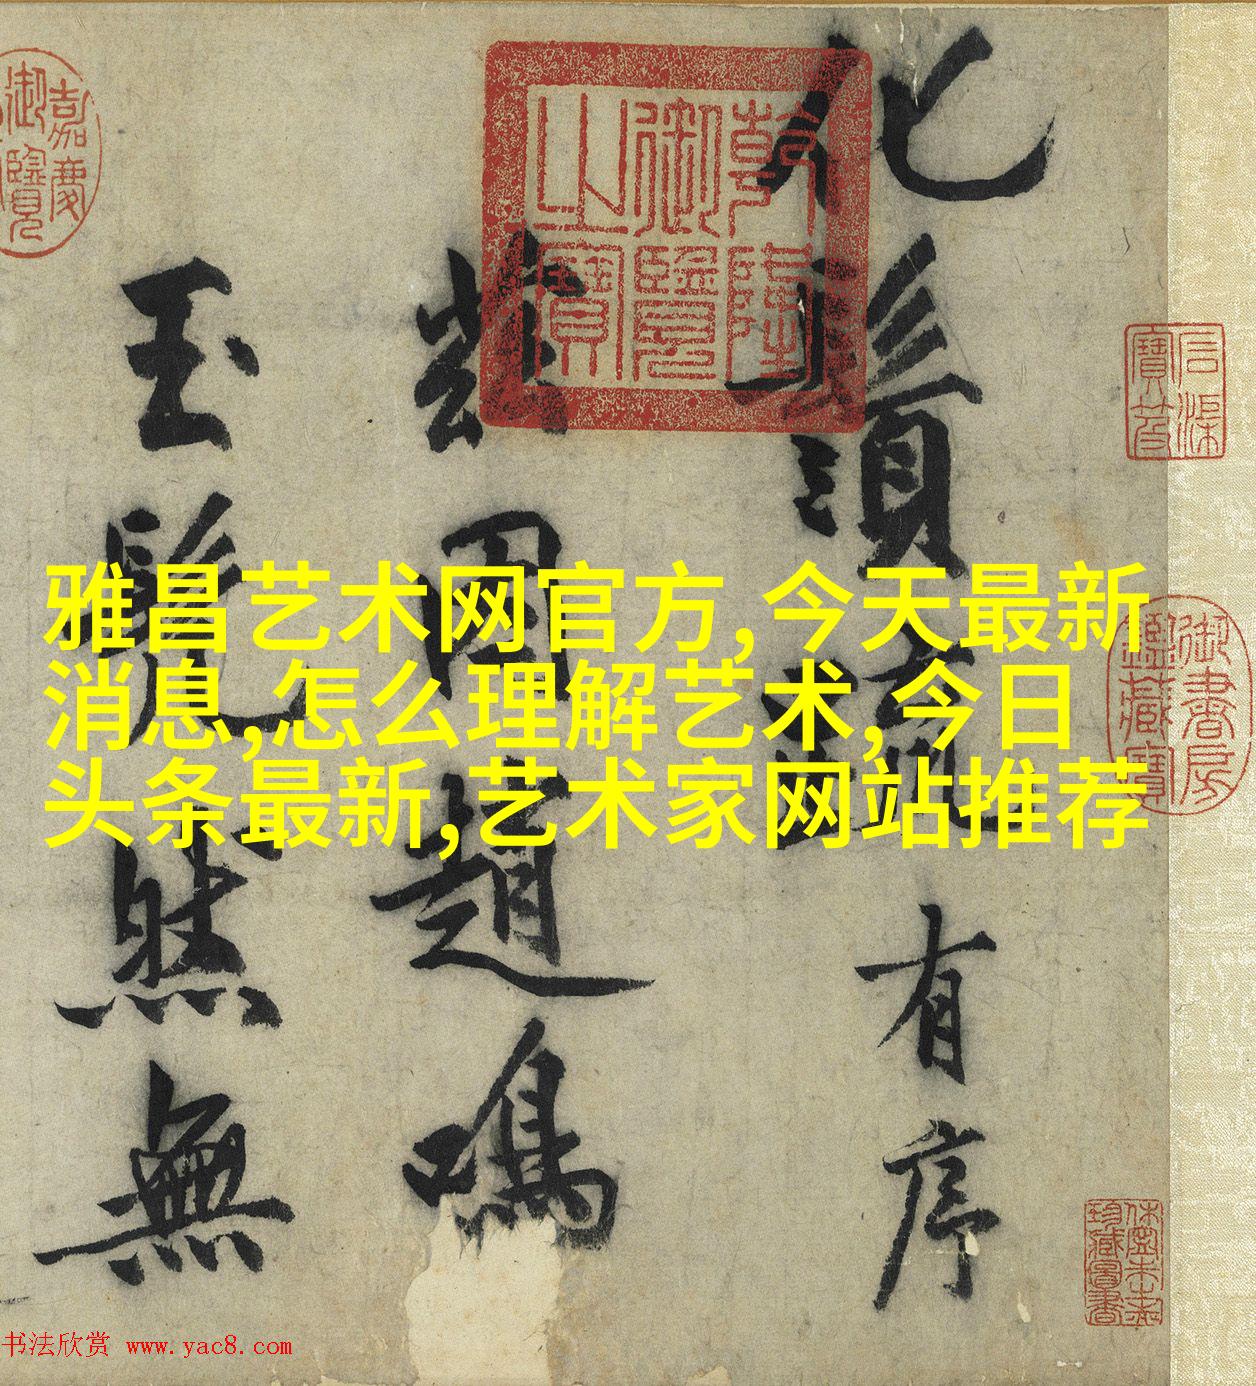 雅昌艺术网官方,今天最新
消息,怎么理解艺术,今日
头条最新,艺术家网站推荐
化鬚疏 有序
凿周趙鳴
玉髮然無
乾隆御覽之寶
嘉慶御覽
石渠寶笈
御書房鑑藏寶
珍藏圖書
书法欣赏 www.yac8.com